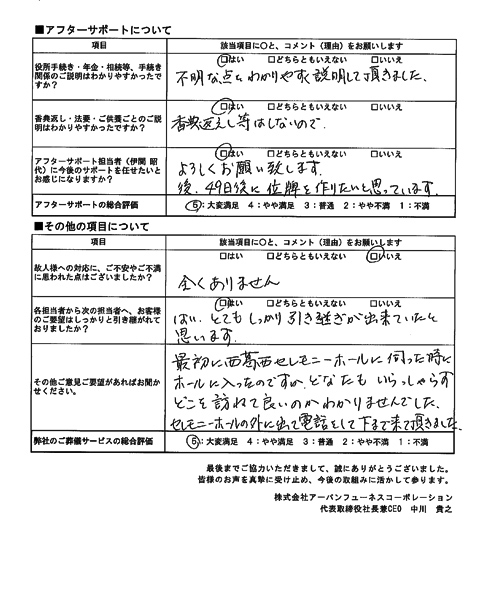 ■アフターサポートについて
項目
該当項目に○と、コメント（理由）をお願いします
役所手続き・年金・相続等、手続き
関係のご説明はわかりやすかったで
すか？
□はい □どちらともいえない □いいえ
不明な点もわかりやすく説明して頂きました、
香典返し・法要・ご供養ごとのご説
明はわかりやすかったですか？
□はい □どちらともいえない □いいえ
香典返えし等はしないので、
アフターサポート担当者（伊関 昭
代）に今後のサポートを任せたいと
お感じになりますか？
□はい □どちらともいえない □いいえ
よろしくお願い致します。
後、49日後に位牌を作りたいと思っています。
アフターサポートの総合評価
5：大変満足 4：やや満足 3：普通 2：やや不満 1：不満
■その他の項目について
項目
該当項目に○と、コメント（理由）をお願いします
故人様への対応に、ご不安やご不満
に思われた点はございましたか？
□はい □どちらともいえない □いいえ
全くありません
各担当者から次の担当者へ、お客様
のご要望はしっかりと引き継がれて
おりましたか？
□はい □どちらともいえない □いいえ
はい、とてもしっかり引き継ぎが出来ていたと
思います。
その他ご意見ご要望があればお聞か
せください。
最初に西葛西セレモニーホールに伺った時に
ホールに入ったのですが、どなたも いらっしゃらず
どこを訪れて良いのかわかりませんでした、
セレモニーホールの外に出て電話をして下まで来て頂きました、
弊社のご葬儀サービスの総合評価
5：大変満足 4：やや満足 3：普通 2：やや不満 1：不満
最後までご協力いただきまして、誠にありがとうございました。
皆様のお声を真摯に受け止め、今後の取組みに活かして参ります。
株式会社アーバンフューネスコーポレーション
代表取締役社長兼CEO 中川 貴之